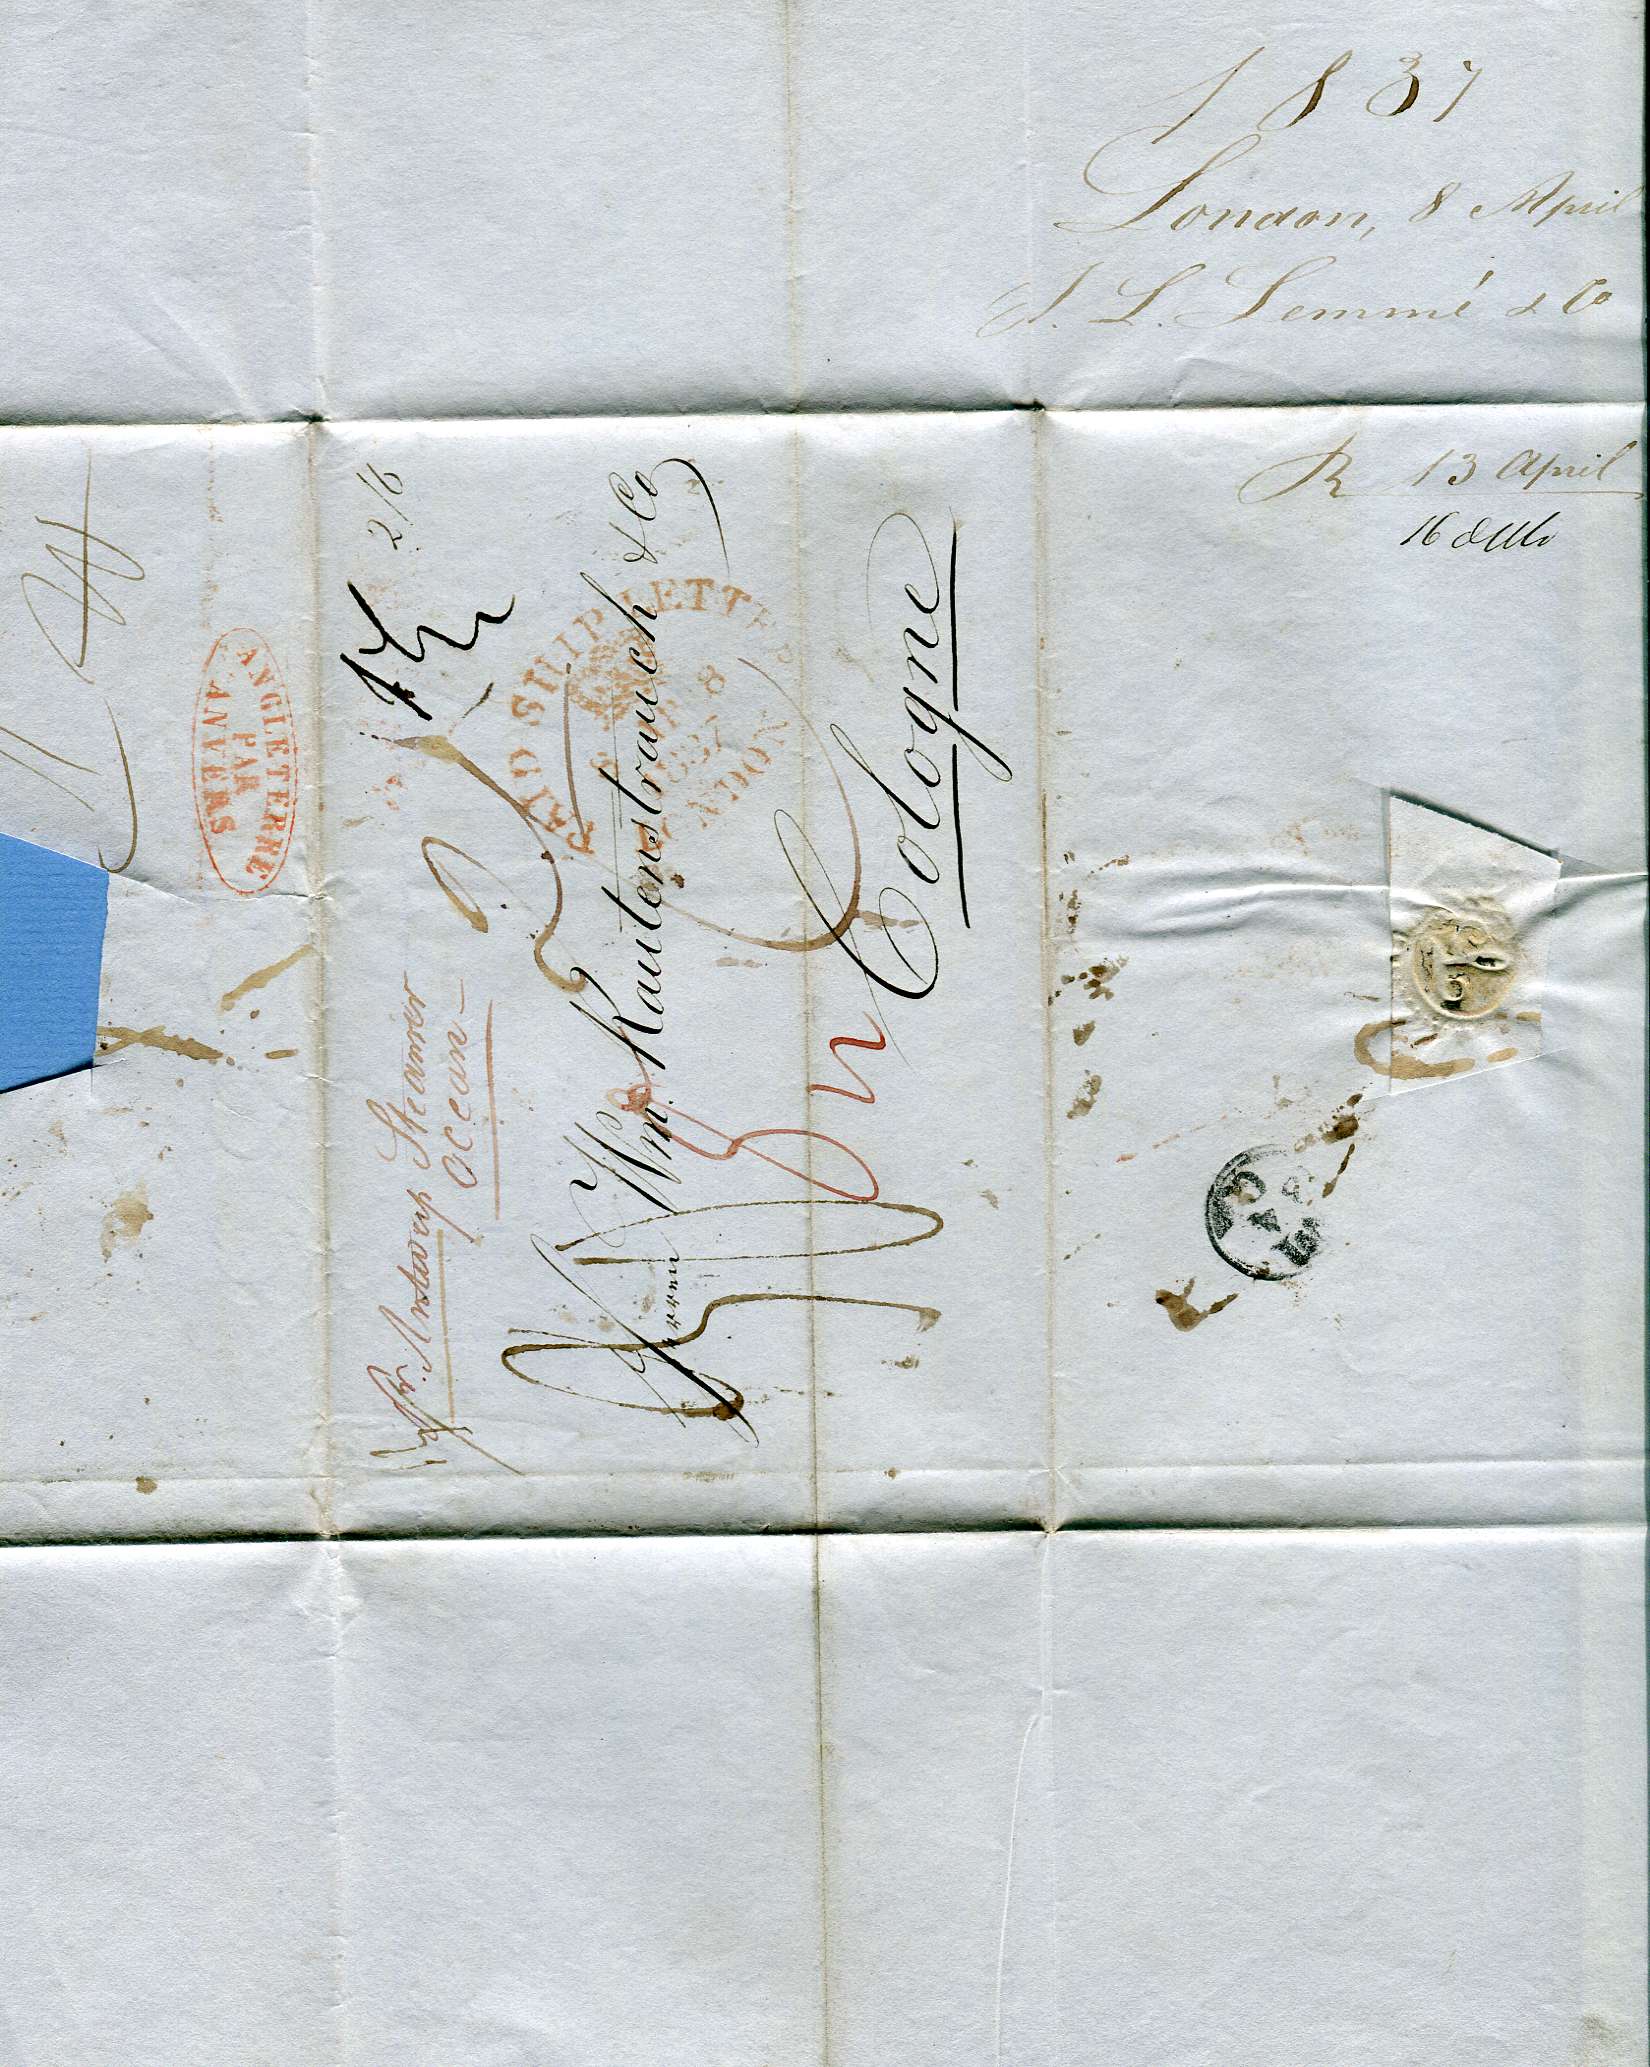 1837
London, 8 April
J. L. Lemmé & Co
R 13 April
16 dtto
2/6
pr. Antwerp Steamer
Ocean
PAID SHIP LETTER
8
1837
LONDON
Herren
Wm. Rautenstrauch & Co
Cologne
ANGLETERRE
PAR
ANVERS